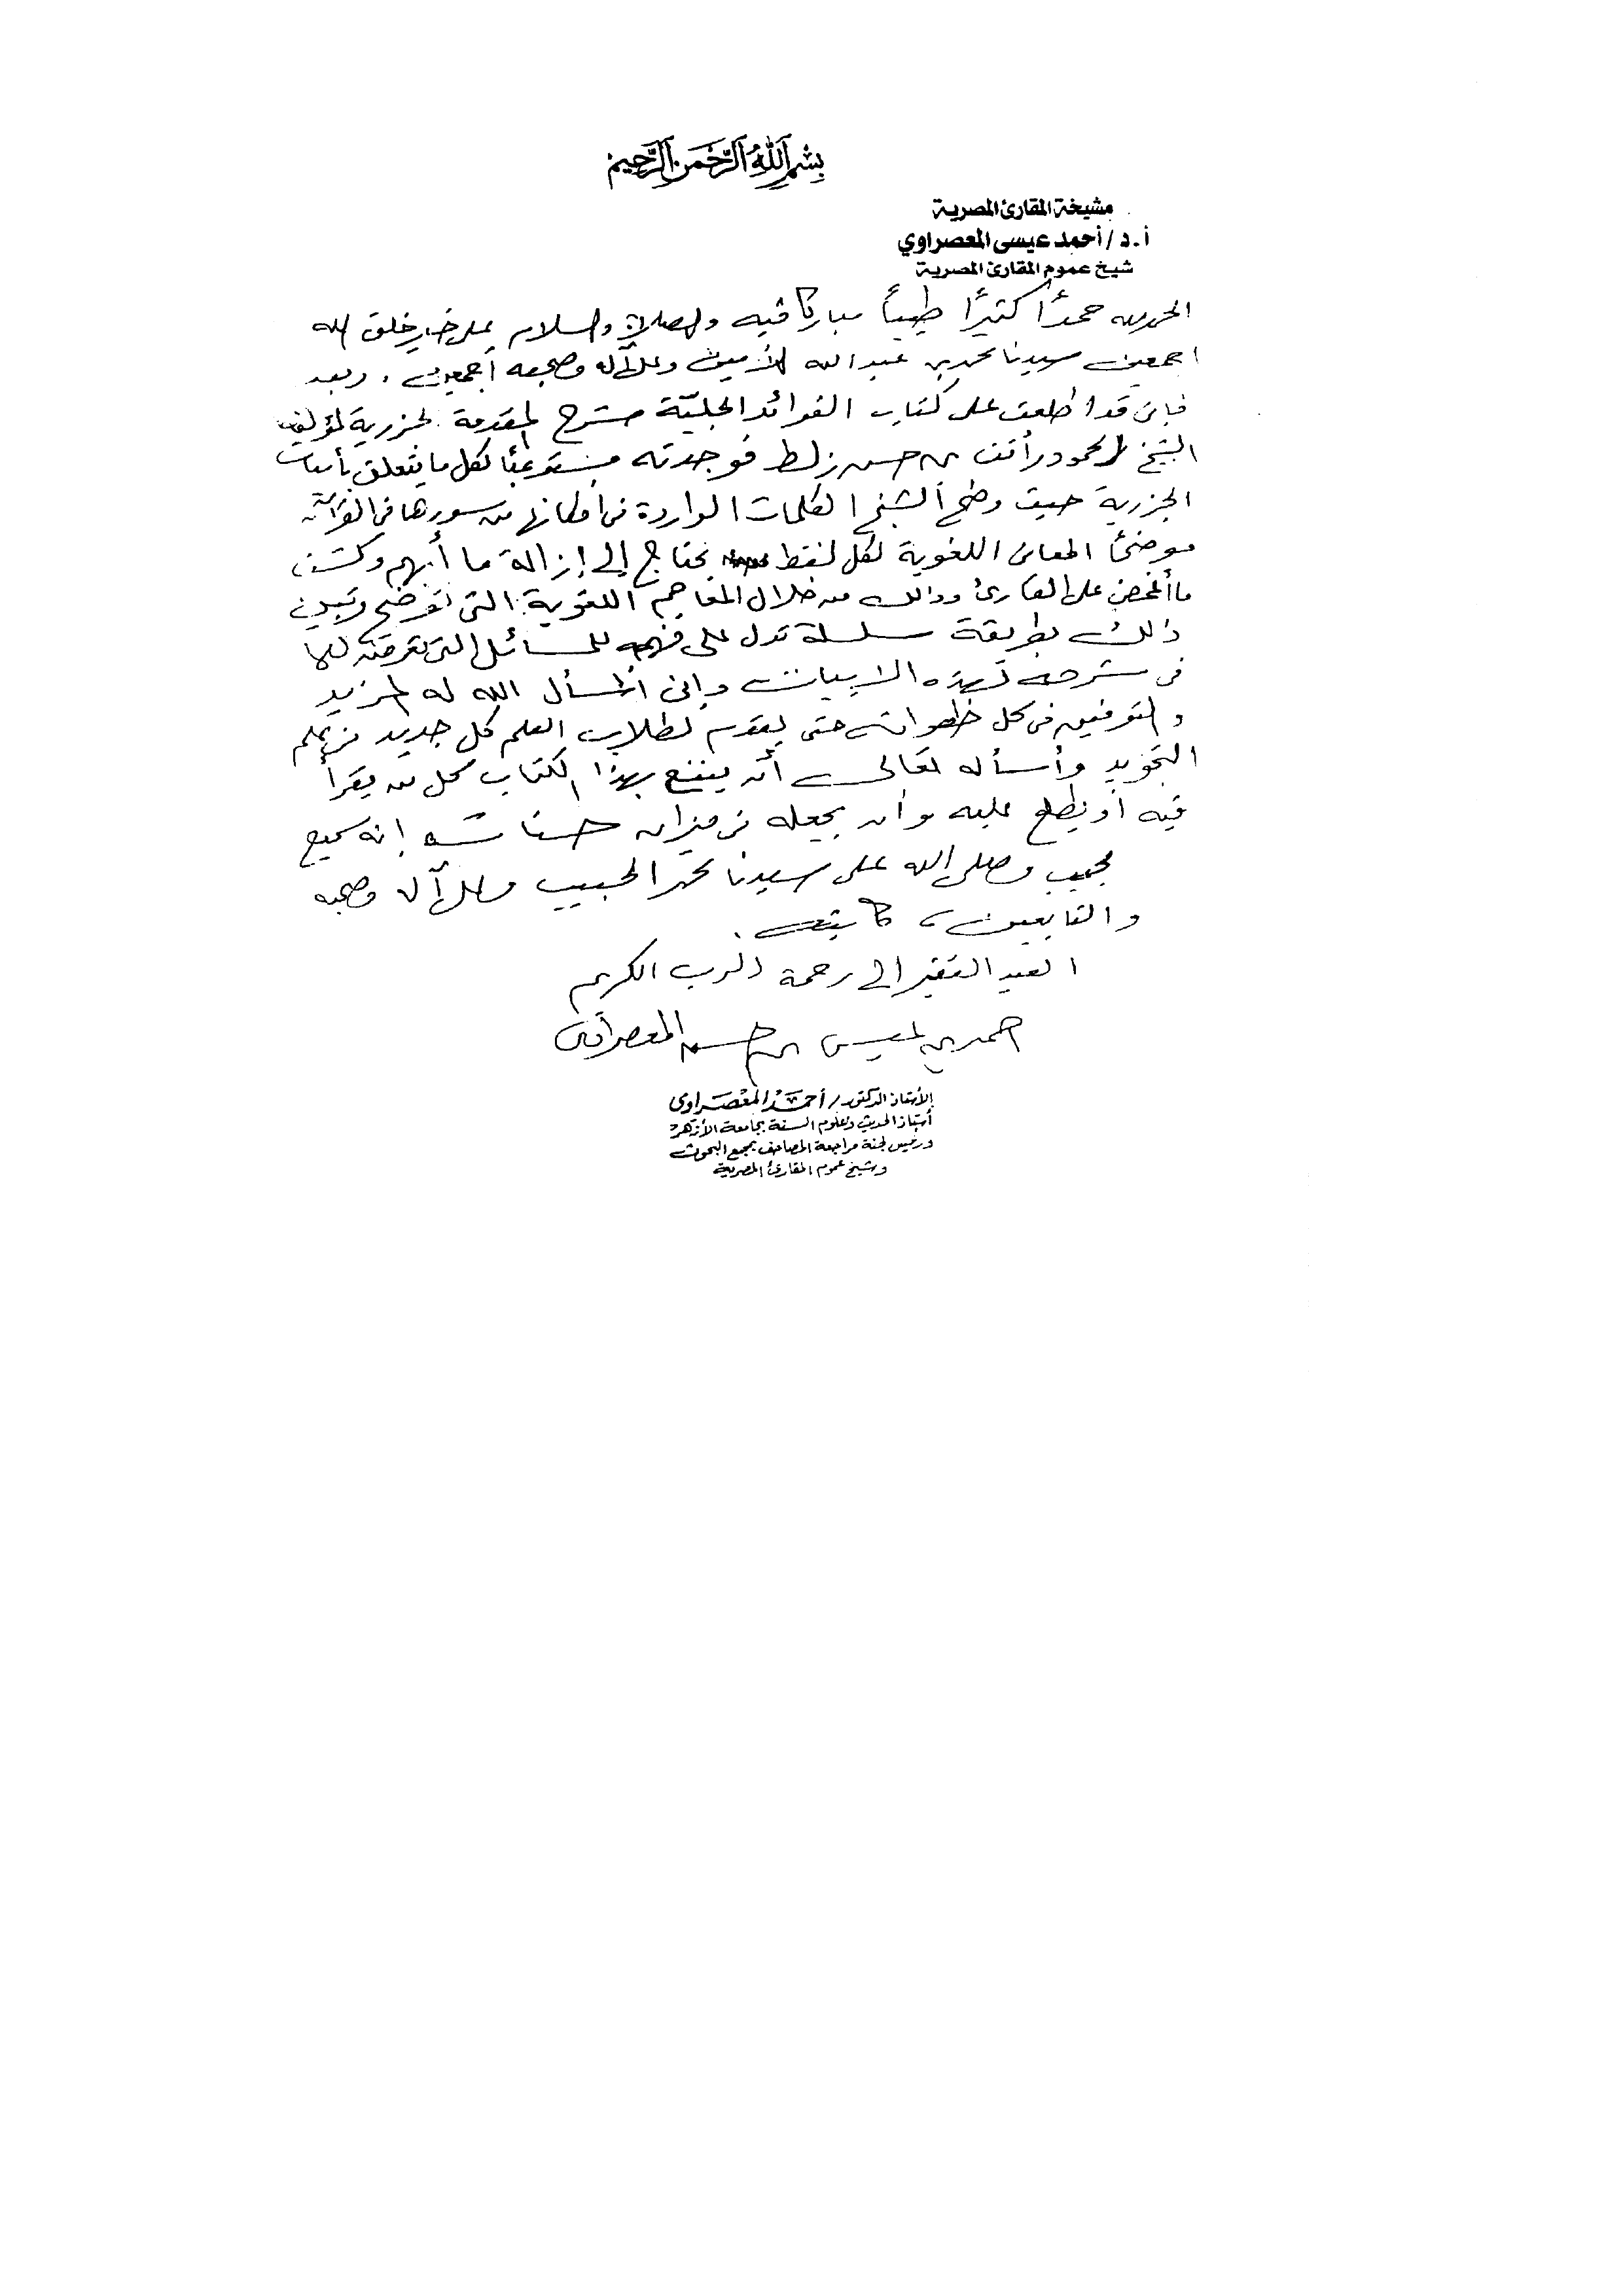 بِسْمِ اللَّهِ الرَّحْمَنِ الرَّحِيمِ
مشيخة المقارئ المصرية
أ.د/ أحمد عيسى المعصراوي
شيخ عموم المقارئ المصرية
الحمد لله حمدًا كثيرًا طيبًا مباركا فيه والصلاة والسلام على خير خلق الله
اجمعين سيدنا محمد بن عبد الله الأمين وعلى آله وصحبه أجمعين . وبعد
فإنى قد اطلعت على كتاب الفوائد الجليّة شرح المقدمة الجزرية لمؤلفه
الشيخ / محمود رأفت بن حسن زلط فوجدته مستوعبًا لكل ما يتعلق بأبيات
الجزرية حيث وضح الشيخ الكلمات الواردة فى أماكنها من سورها فى القرآن
موضحًا المعانى اللغوية لكل لفظ يحتاج إلى إزالة ما أبهم وكشف
ما أغمض على القارئ وذلك من خلال المعاجم اللغوية التى توضح وتبين
ذلك بطريقة سلسلة تدل على فهمه للمسائل التى تعرض لها
فى شرحه لهذه الابيات وإنى أسأل الله له المزيد
والتوفيق فى كل خطواته حتى يقدم لطلاب العلم كل جديد فى علم
التجويد وأسأله تعالى أن ينفع بهذا الكتاب كل من يقرأ
فيه أو يطلع عليه وأن يجعله فى ميزان حسناته إنه سميع
مجيب وصلى الله على سيدنا محمد الحبيب وعلى آله وصحبه
والتابعين ، كاتبه .
العبد الفقير إلى رحمة الرب الكريم
احمد بن عيسى بن حسن المعصراوى
الأستاذ الدكتور / أحمد المعصراوى
أستاذ الحديث وعلوم السنة بجامعة الأزهر
ورئيس لجنة مراجعة المصاحف بمجمع البحوث
وشيخ عموم المقارئ المصرية